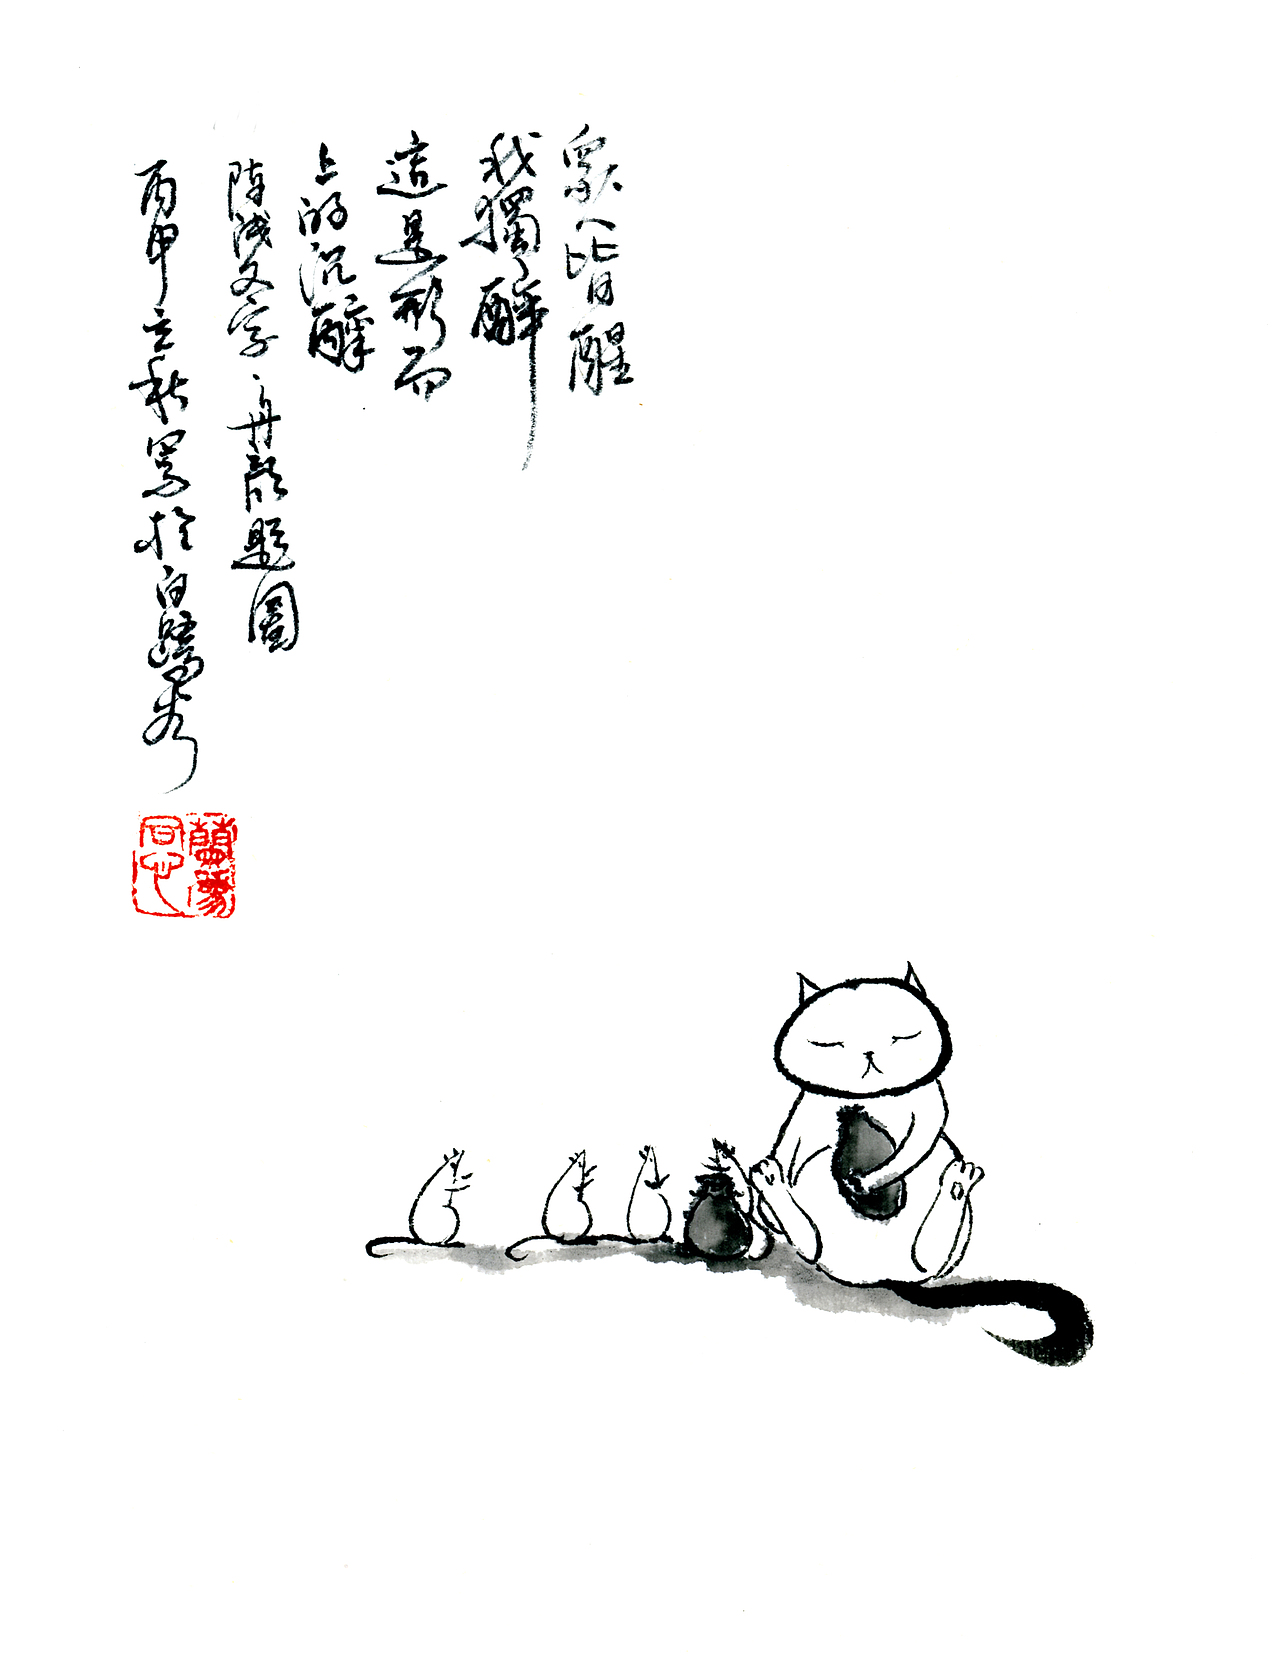 眾人皆醒
我獨醉
這是形而
上的沉醉
陣淺文字、舟敲題圖
丙申立秋寫於白鷺秀